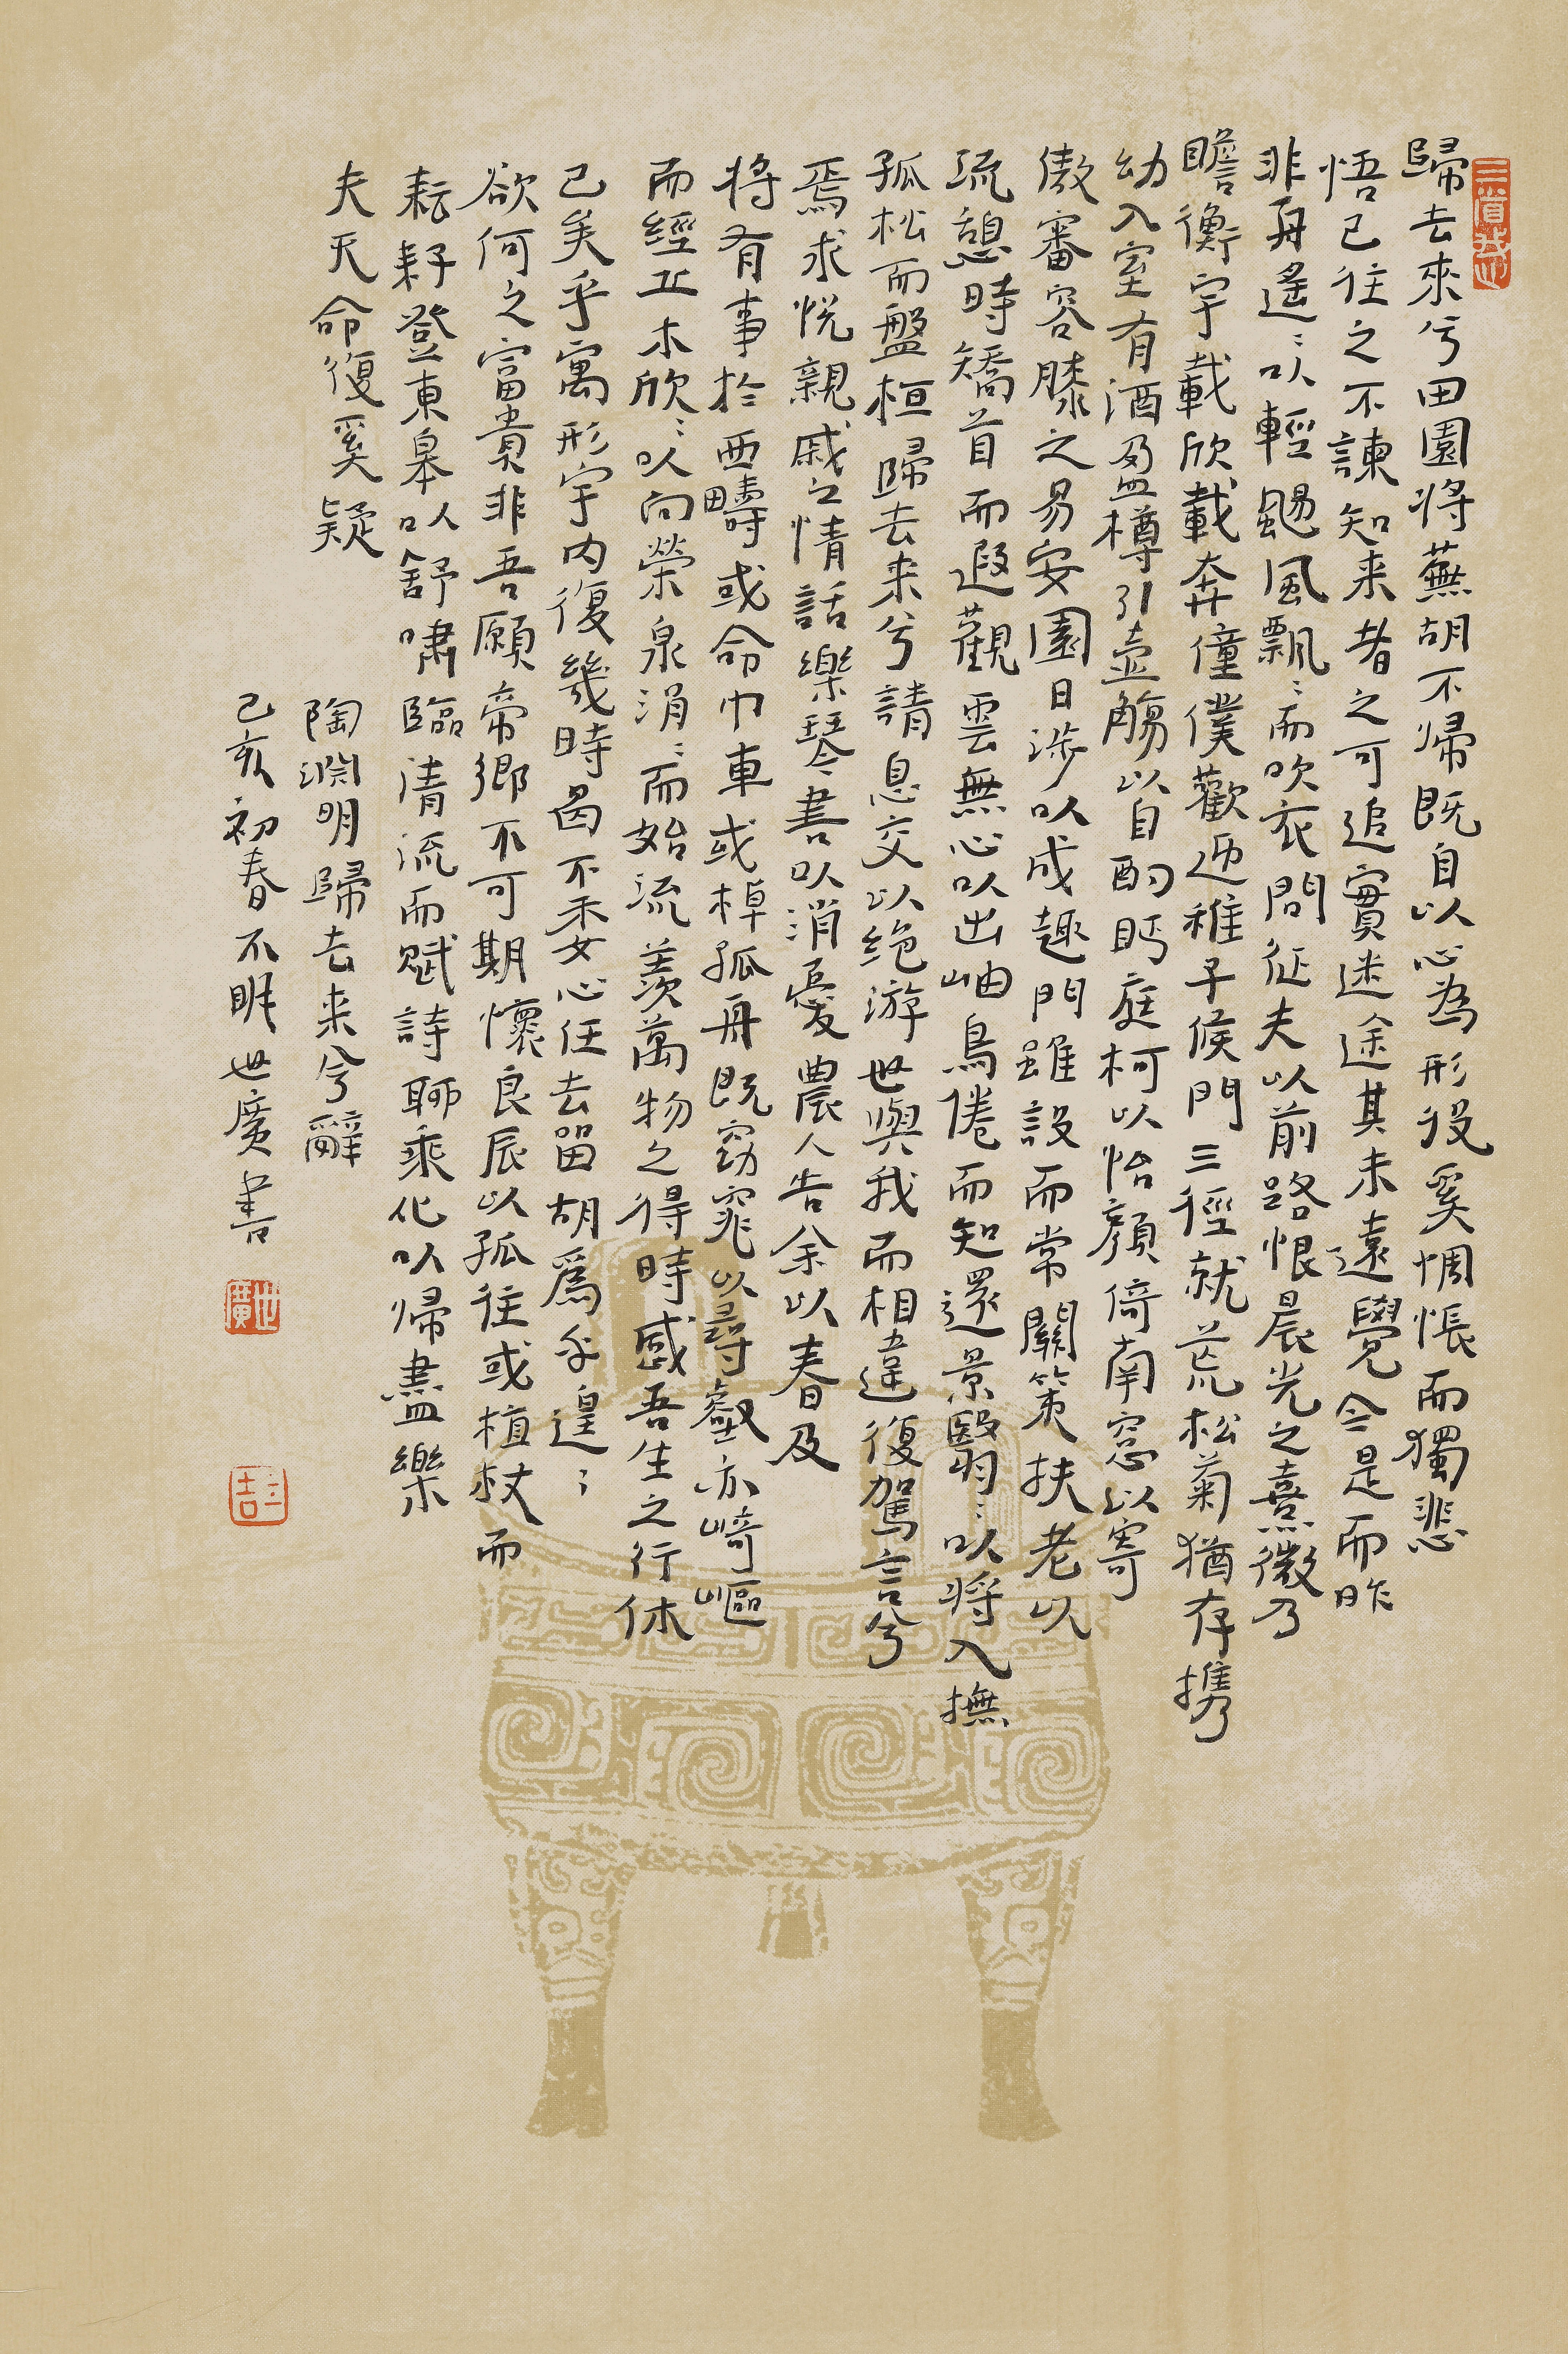 歸去來兮田園將蕪胡不帰既自以心為形役奚惆悵而獨悲
悟已往之不諫知来者之可追實迷途其未遠覺今是而昨
非舟遙〻以輕颺風飄〻而吹衣問征夫以前路恨晨光之熹微乃
瞻衡宇載欣載奔僮僕歡迎稚子候門三徑就荒松菊猶存携
幼入室有酒盈樽引壺觴以自酌眄庭柯以怡顏倚南窓以寄
傲審容膝之易安園日涉以成趣門雖設而常關策扶老以
流憩時矯首而遐觀雲無心以出岫鳥倦而知還景翳〻以将入撫
孤松而盤桓歸去来兮請息交以绝游世與我而相違復駕言兮
焉求悦親戚之情話樂琴書以消憂農人告余以春及
将有事於西疇或命巾車或棹孤舟既窈窕以尋壑亦崎嶇
而經丘木欣〻以向榮泉涓〻而始流羨萬物之得時感吾生之行休
已矣乎寓形宇内復幾時曷不委心任去留胡爲乎遑〻
欲何之富貴非吾願帝鄉不可期懷良辰以孤往或植杖而
耘耔登東皋以舒嘯臨清流而賦詩聊乘化以帰盡樂
夫天命復奚疑
陶淵明歸去来兮辭
己亥初春不眠世廣書
世廣